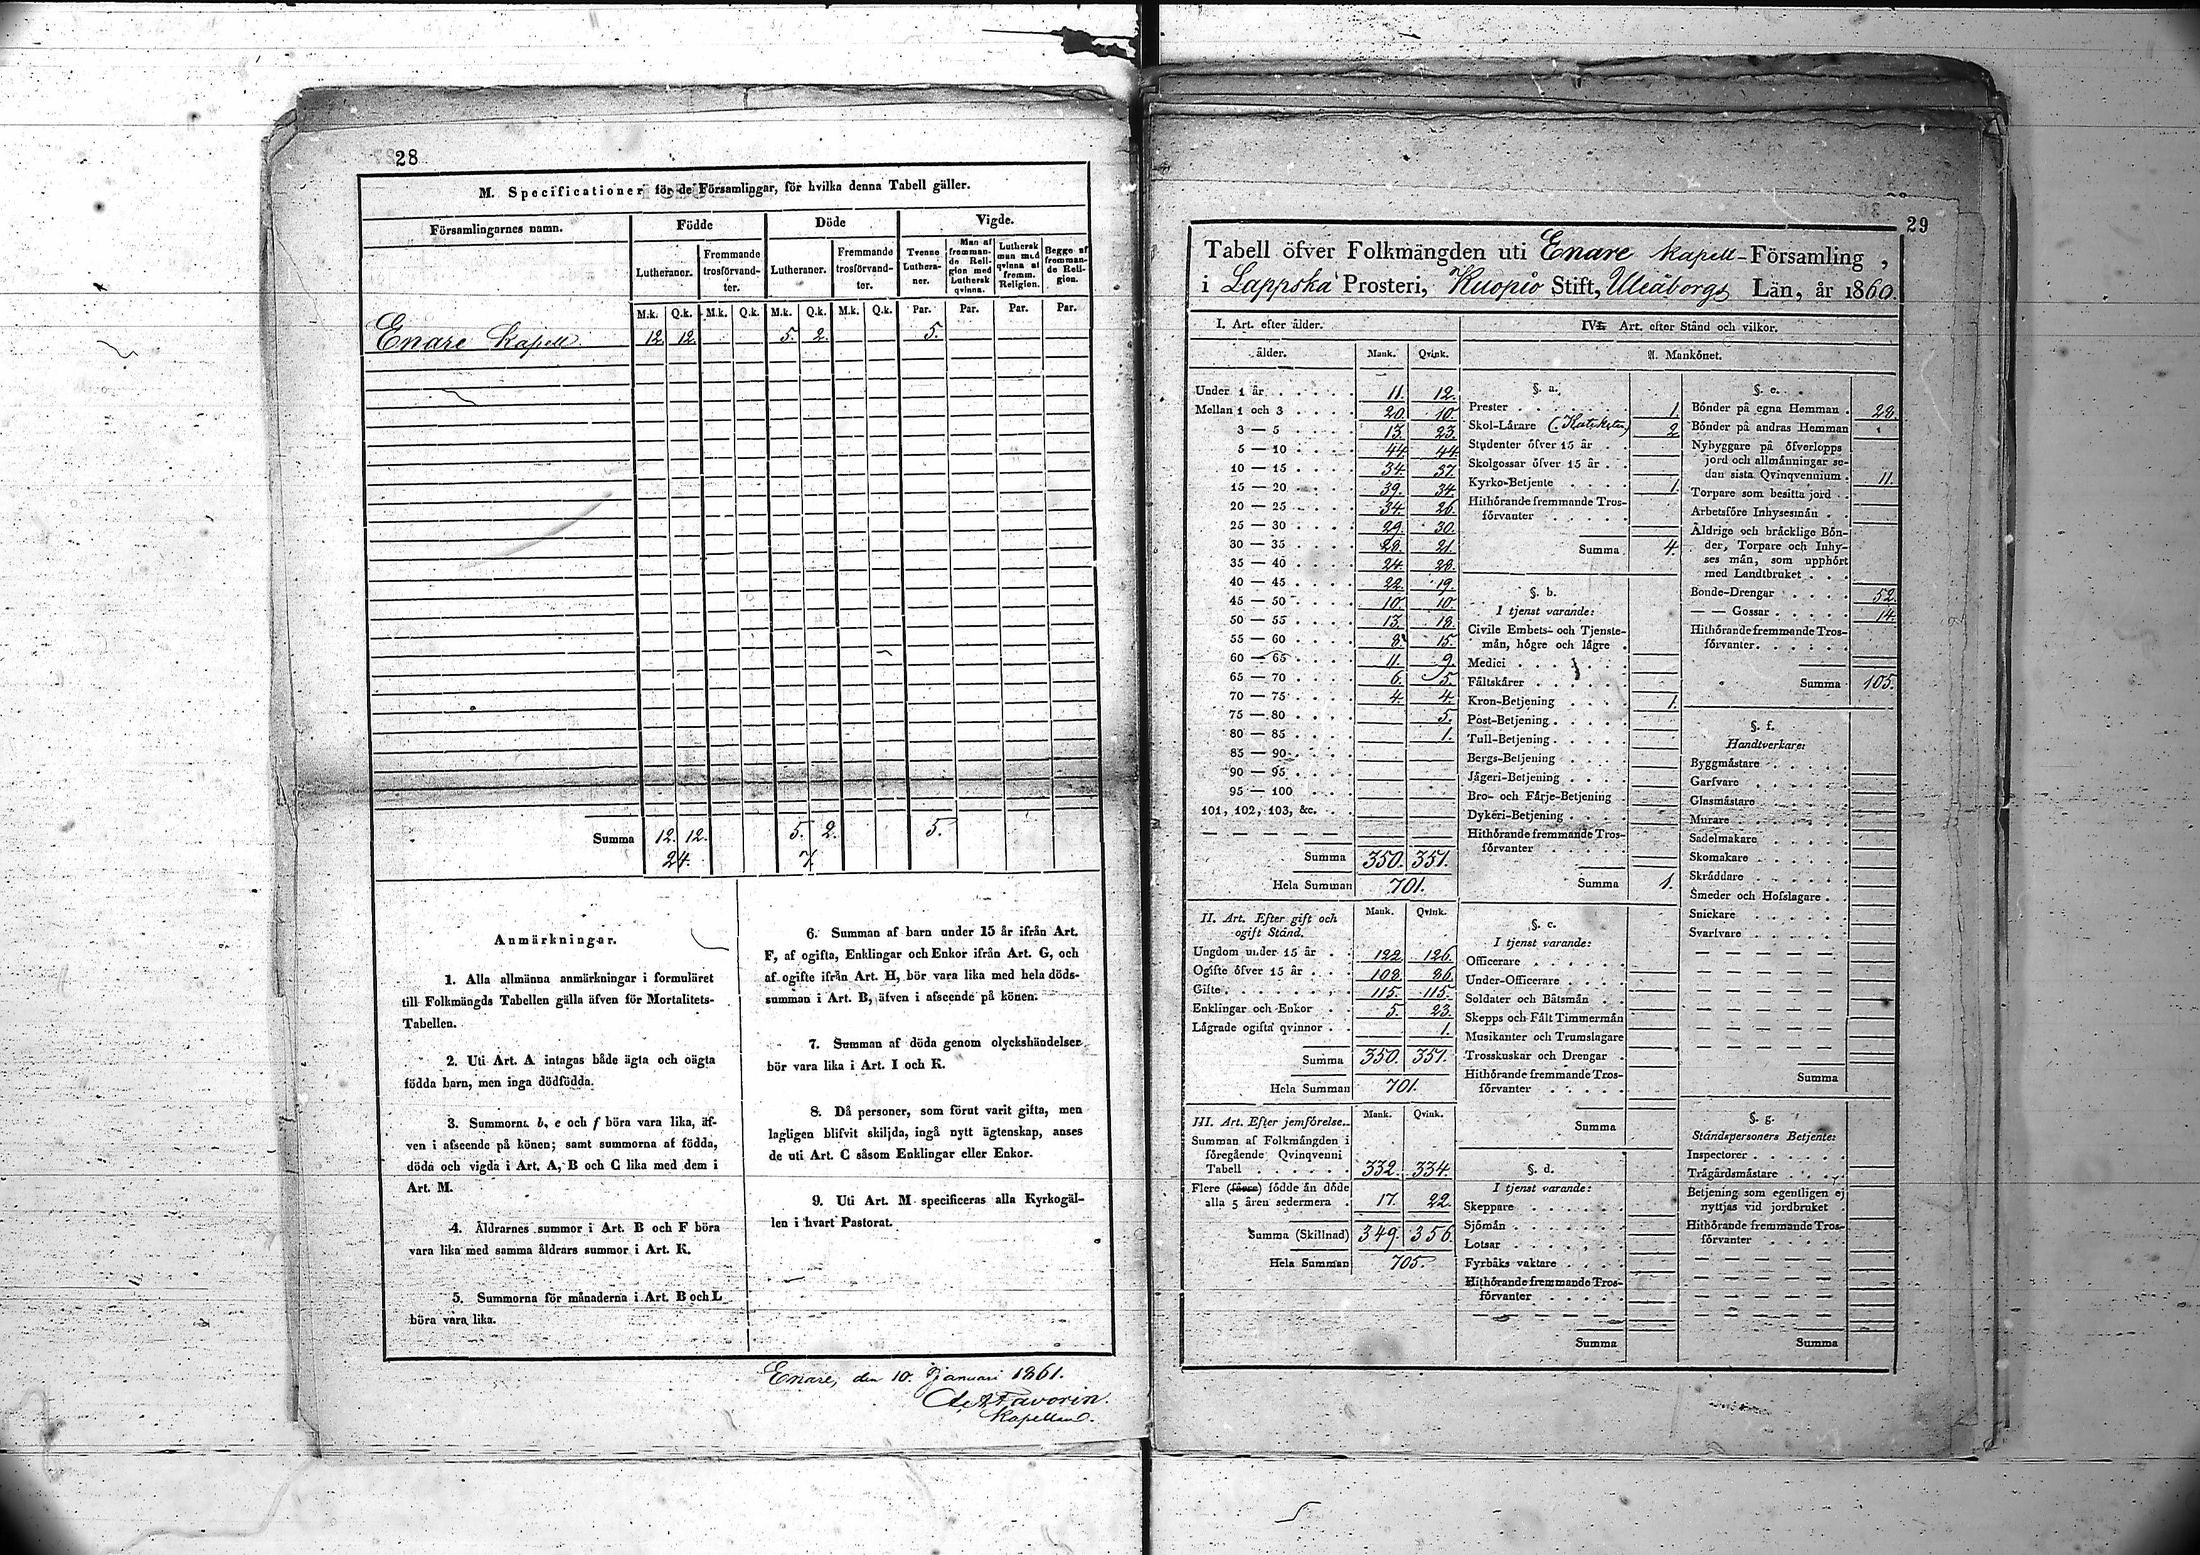 28
M. Specificationer för de Församlingar, för hvilka denna Tabell gäller.
Församlingarnes namn. Födde Döde Vigde.
Lutheraner. Fremmande trosförvandter. Lutheraner. Fremmande trosförvandter. Tvenne Lutheraner. Man af fremmande Religion med Luthersk qvinna. Luthersk man med qvinna af fremm. Religion. Begge af fremmande Religion.
M.k. Q.k. M.k. Q.k. M.k. Q.k. M.k. Q.k. Par. Par. Par. Par.
Enare Kapell 12 12. 5. 2. 5.
Summa 12. 12. 5. 2. 5.
24. 7.
Anmärkningar.
1. Alla allmänna anmärkningar i formuläret
till Folkmängds Tabellen gälla äfven för Mortalitets-
Tabellen.
2. Uti Art. A intagas både ägta och oägta
födda barn, men inga dödfödda.
3. Summorna b, e och f böra vara lika, äf-
ven i afseende på könen; samt summorna af födda,
döda och vigda i Art. A, B och C lika med dem i
Art. M.
4. Åldrarnes summor i Art. B och F böra
vara lika med samma åldrars summor i Art. K.
5. Summorna för månaderna i Art. B och L
böra vara lika.
6. Summan af barn under 15 år ifrån Art.
F, af ogifta, Enklingar och Enkor ifrån Art. G, och
af ogifte ifrån Art. H, bör vara lika med hela döds-
summan i Art. B, äfven i afseende på könen.
7. Summan af döda genom olyckshändelser
bör vara lika i Art. I och K.
8. Då personer, som förut varit gifta, men
lagligen blifvit skiljda, ingå nytt ägtenskap, anses
de uti Art. C såsom Enklingar eller Enkor.
9. Uti Art. M specificeras alla Kyrkogäl-
len i hvart Pastorat.
Enare, den 10. Januari 1861.
Favorin.
Kapellan.
29
Tabell öfver Folkmängden uti Enare Kapell-Församling,
i Lappska Prosteri, Kuopio Stift, Uleåborgs Län, år 1860.
I. Art. efter ålder.
ålder. Mank. Qvink.
Under 1 år 11. 12.
Mellan 1 och 3 20. 10.
3 — 5 13. 23.
5 — 10 44. 44
10 — 15 34. 37.
15 — 20 39. 34.
20 — 25 34. 26.
25 — 30 29. 30.
30 — 35 28. 21.
35 — 40 24. 28.
40 — 45 22. 19.
45 — 50 10. 10.
50 — 55 13. 18.
55 — 60 8. 15.
60 — 65 11. 9.
65 — 70 6. 5.
70 — 75 4. 4.
75 — 80 5.
80 — 85 1.
85 — 90
90 — 95
95 — 100
101, 102, 103, &c.
Summa 350. 351.
Hela Summan 701.
II. Art. Efter gift och Mank. Qvink.
ogift Stånd.
Ungdom under 15 år 122 126.
Ogifte öfver 15 år 108 86.
Gifte 115. 115.
Enklingar och Enkor 5. 23.
Lägrade ogifta qvinnor 1.
Summa 350. 351.
Hela Summan 701.
III. Art. Efter jemförelse. Mank. Qvink.
Summan af Folkmängden i
föregående Qvinqvenni
Tabell 332. 334.
Flere (färre) födde än döde
alla 5 åren sedermera 17. 22.
Summa (Skillnad) 349. 356.
Hela Summan 705.
IV. Art. efter Stånd och vilkor.
A. Mankönet.
§. a.
Prester 1.
Skol-Lärare (Kateketer) 2.
Studenter öfver 15 år
Skolgossar öfver 15 år
Kyrko-Betjente 1.
Hithörande fremmande Tros-
förvanter
Summa 4.
§. b.
I tjenst varande:
Civile Embets- och Tjenste-
män, högre och lägre
Medici
Fältskärer
Kron-Betjening 1.
Post-Betjening
Tull-Betjening
Bergs-Betjening
Jägeri-Betjening
Bro- och Färje-Betjening
Dykeri-Betjening
Hithörande fremmande Tros-
förvanter
Summa 1.
§. c.
I tjenst varande:
Officerare
Under-Officerare
Soldater och Båtsmän
Skepps och Fält Timmermän
Musikanter och Trumslagare
Trosskuskar och Drengar
Hithörande fremmande Tros-
förvanter
Summa
§. d.
I tjenst varande:
Skeppare
Sjömän
Lotsar
Fyrbåks vaktare
Hithörande fremmande Tros-
förvanter
Summa
§. e.
Bönder på egna Hemman 28.
Bönder på andras Hemman
Nybyggare på öfverlopps
jord och allmänningar se-
dan sista Qvinqvennium 11.
Torpare som besitta jord
Arbetsföre Inhysesmän
Åldrige och bräcklige Bön-
der, Torpare och Inhy-
ses män, som upphört
med Landtbruket
Bonde-Drengar 52.
— — Gossar 14.
Hithörande fremmande Tros-
förvanter.
Summa 105.
§. f.
Handtverkare:
Byggmästare
Garfvare
Glasmästare
Murare
Sadelmakare
Skomakare
Skräddare
Smeder och Hofslagare
Snickare
Svarfvare
Summa
§. g.
Ståndspersoners Betjente:
Inspectorer
Trägårdsmästare
Betjening som egentligen ej
nyttjas vid jordbruket
Hithörande fremmande Tros-
förvanter
Summa